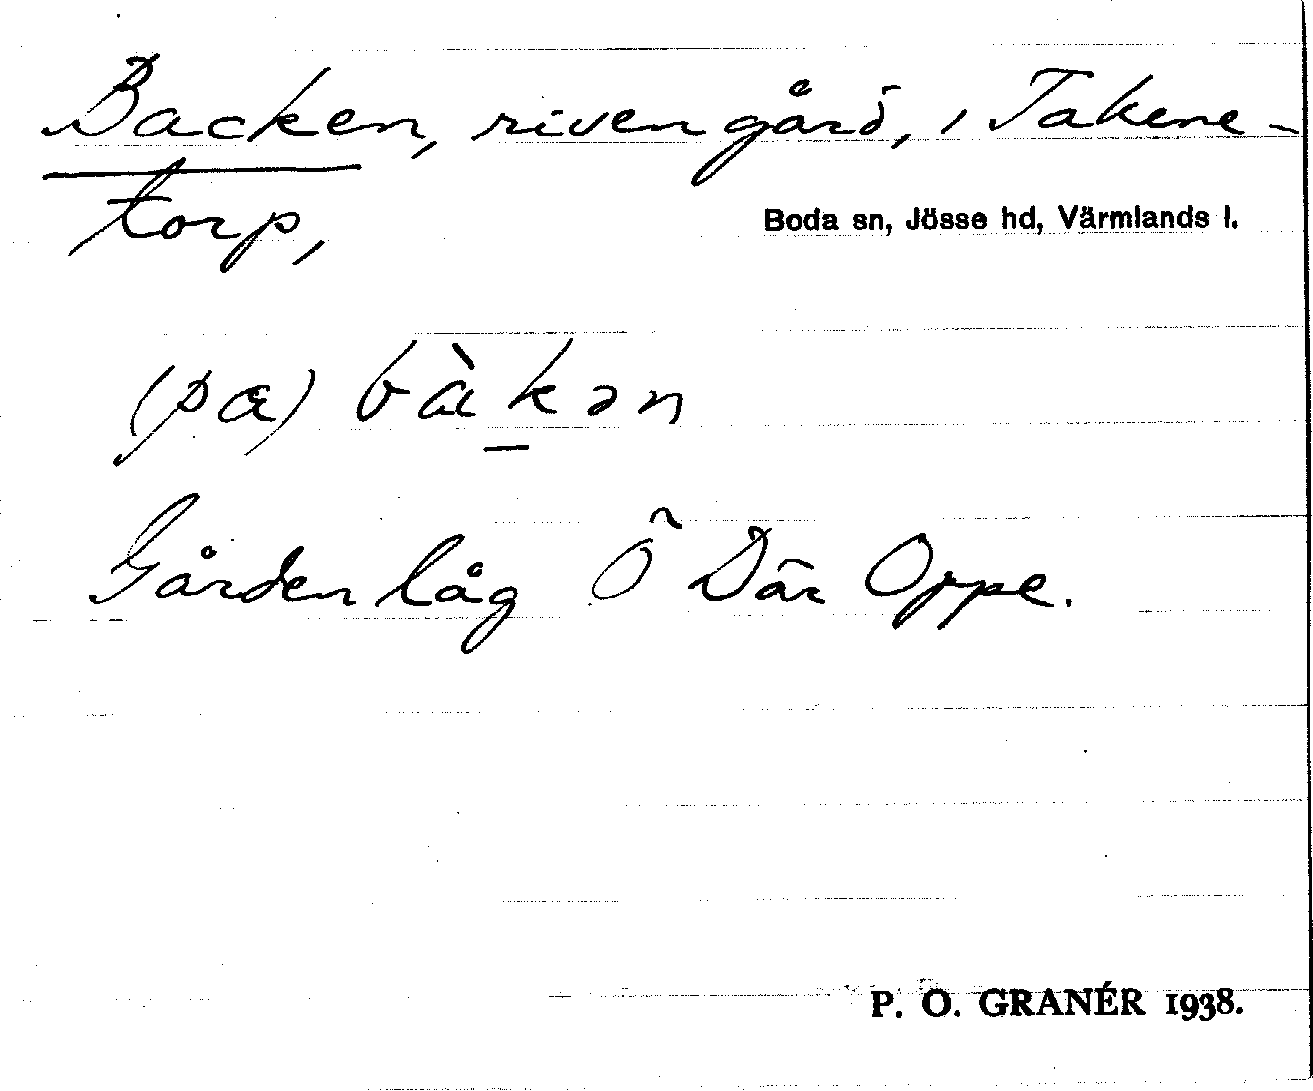 Backen, riven gård, i Takene-
torp,
Boda sn, Jösse hd, Värmlands l.
(pα) bὰk̠ən
Gården låg Ö Där Oppe.
P. O. GRANÉR 1938.